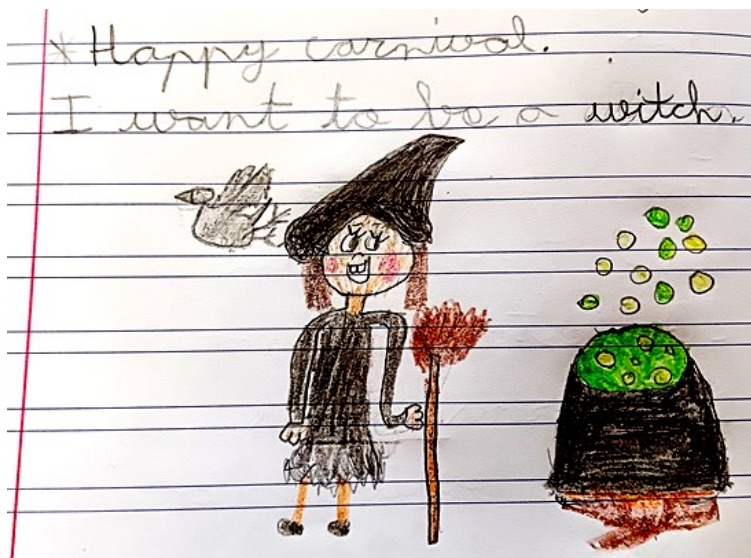 *Happy carnival.
I want to be a witch.